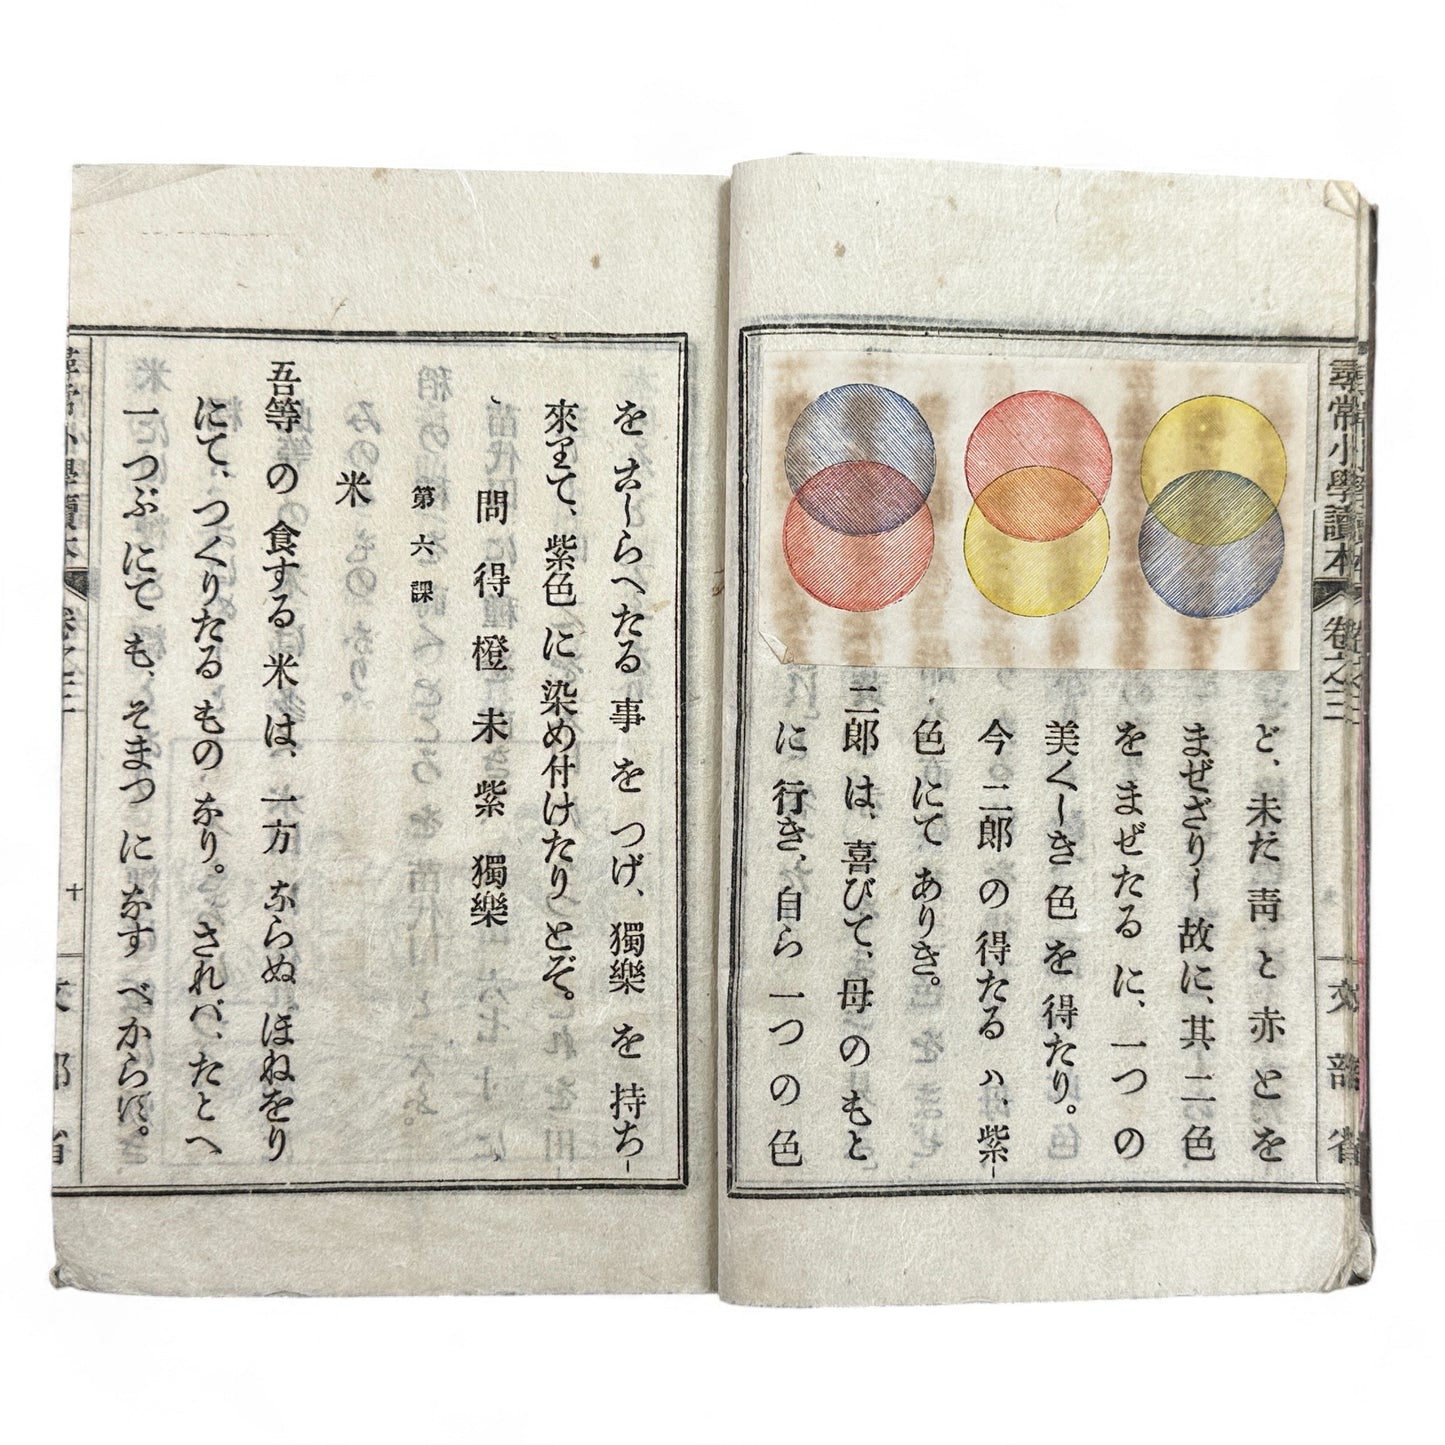 尋常小學讀本 卷之三 文部省
ど、未だ靑と赤とを
まぜざりし故に、其二色
をまぜたるに、一つの
美くしき色を得たり。
今二郎の得たるハ、紫
色にてありき。
二郎は、喜びて、母のもと
に行き、自ら一つの色
をこしらへたる事をつげ、獨樂を持ち
來りて、紫色に染め付けたりとぞ。
問 得 橙 未 紫 獨樂
第六課
米
吾等の食する米は、一方ならぬほねをり
にて、つくりたるものなり。されバ、たとへ
一つぶにても、そまつになすべからず。
十